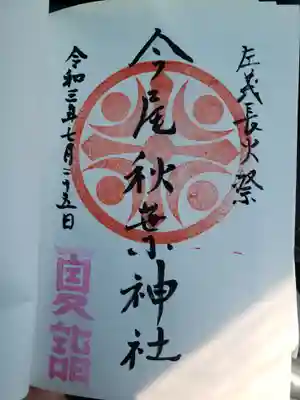 左義長火祭
今尾秋葉神社
令和三年七月二十五日
夏詣